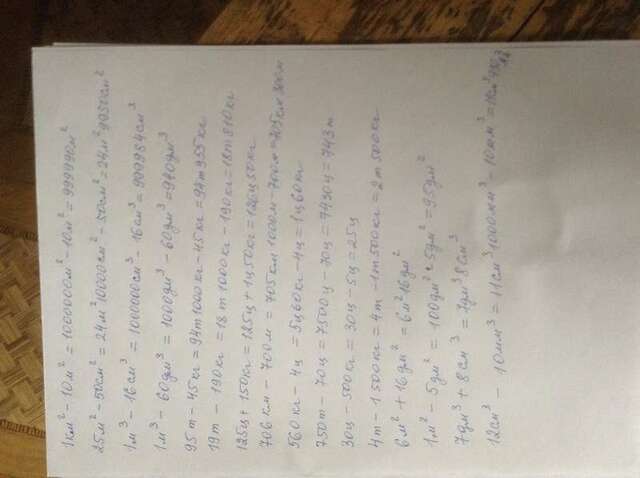 1км² - 10м² = 1000000м² - 10м² = 999990м²
25м² - 50см² = 24м²10000см² - 50см² = 24м²9950см²
1м³ - 16см³ = 1000000см³ - 16см³ = 999984см³
1м³ - 60дм³ = 1000дм³ - 60дм³ = 940дм³
95т - 45кг = 94т1000кг - 45кг = 94т955кг
19т - 190кг = 18т1000кг - 190кг = 18т810кг
125ц + 150кг = 125ц + 1ц50кг = 126ц50кг
706км - 700м = 705км1000м - 700м = 705км300м
560кг - 4ц = 5ц60кг - 4ц = 1ц60кг
750т - 70ц = 7500ц - 70ц = 7430ц = 743т
30ц - 500кг = 30ц - 5ц = 25ц
4т - 1500кг = 4т - 1т500кг = 2т500кг
6м² + 16дм² = 6м²16дм²
1м² - 5дм² = 100дм² - 5дм² = 95дм²
7дм³ + 8см³ = 7дм³8см³
12см³ - 10мм³ = 11см³1000мм³ - 10мм³ =